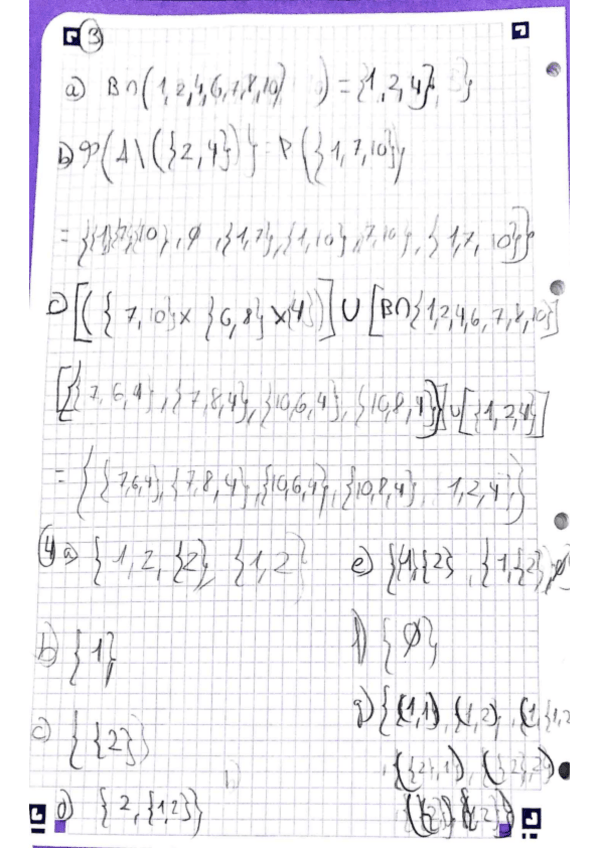 3
a) B∩(1,2,4,6,7,8,10) = {1,2,4}
b) P(A\({2,4})} = P({1,7,10})
= {{1},{7},{10}, ∅, {1,7},{1,10},{7,10}, {1,7,10}}
c) [({7,10}×{6,8}×{4})] ∪ [B∩{1,2,4,6,7,8,10}]
[{{7,6,4},{7,8,4},{10,6,4},{10,8,4}}] ∪ [{1,2,4}]
= {{7,6,4},{7,8,4},{10,6,4},{10,8,4}, 1,2,4}
4 a) {1,2,{2}, {1,2}
b) {1}
c) {{2}}
d) {2,{1,2}}
e) {{1},{2}, {1,{2}},∅
f) {∅}
g) {(1,1),(1,2),(1,{1,2
,({2},1),({2},2)
({2},{1,2})}